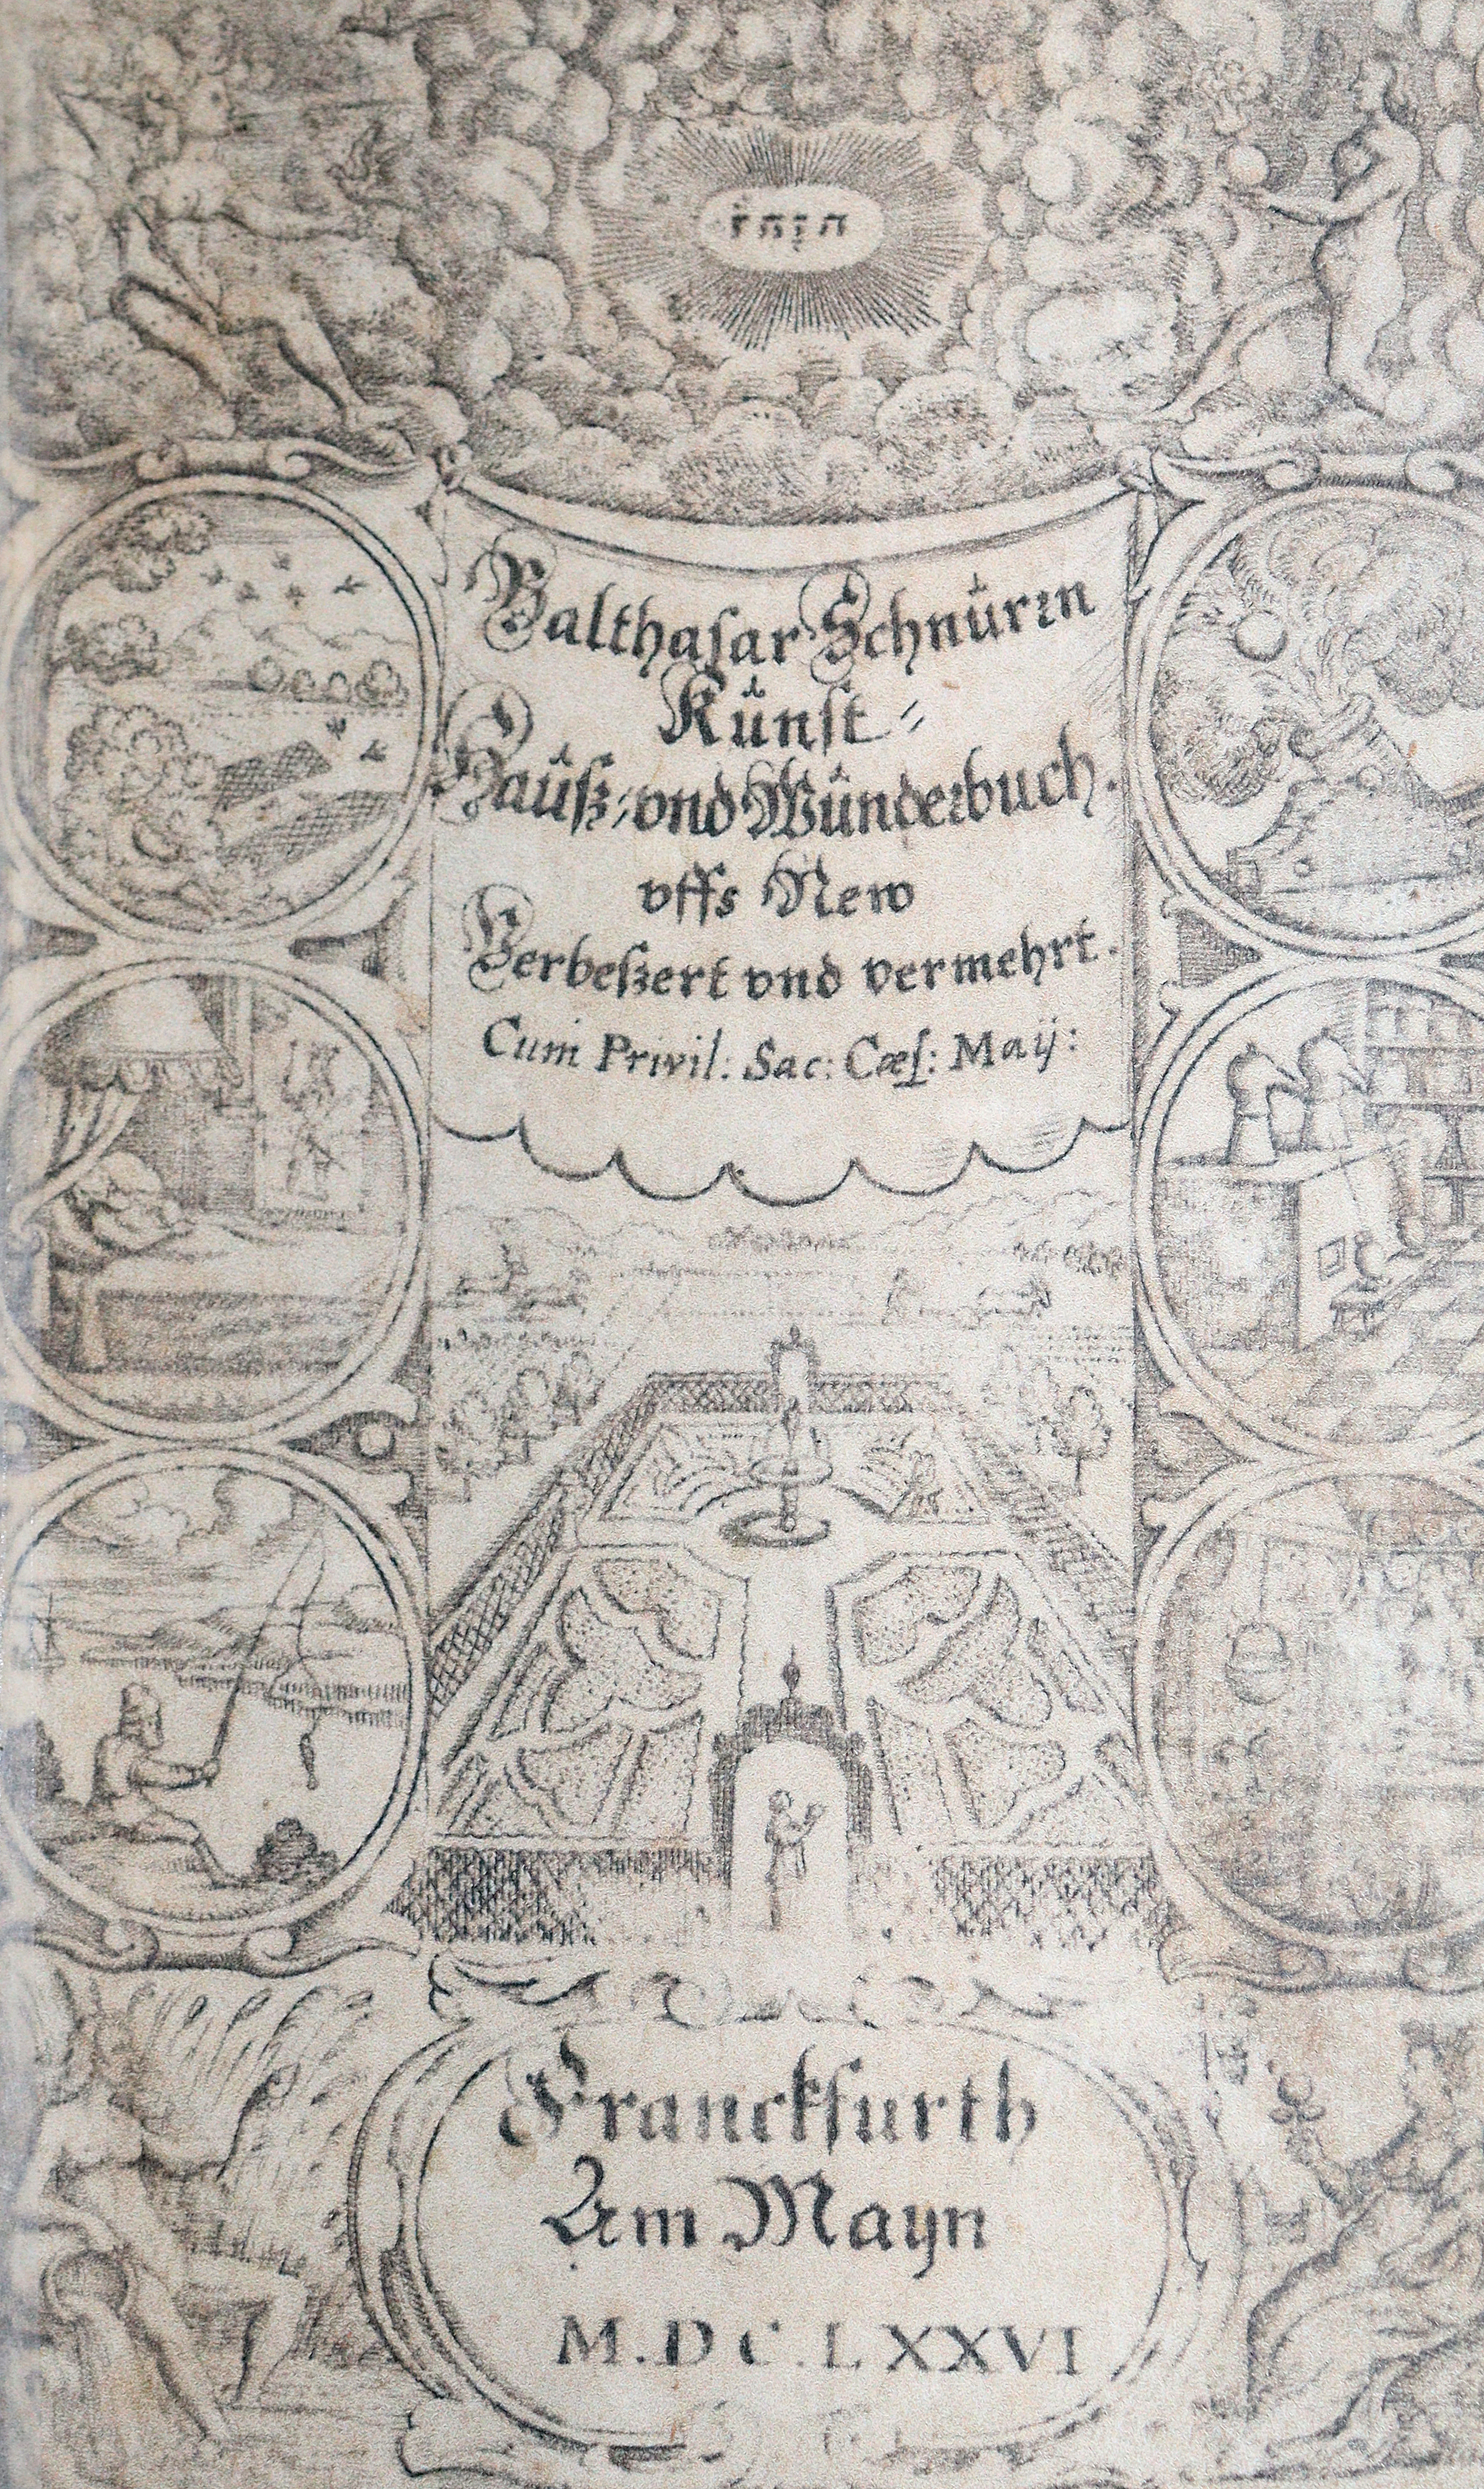 יהוה
Balthaſar Schnürꝛn
Kůnſt⸗
Haůſz⸗ vnd Wůnderbuch.
vffs New
Verbeſzert vnd vermehrt.
Cum Privil: Sac: Cæſ: Maij:
Franckfurth
Am Mayn
M.DC.LXXVI